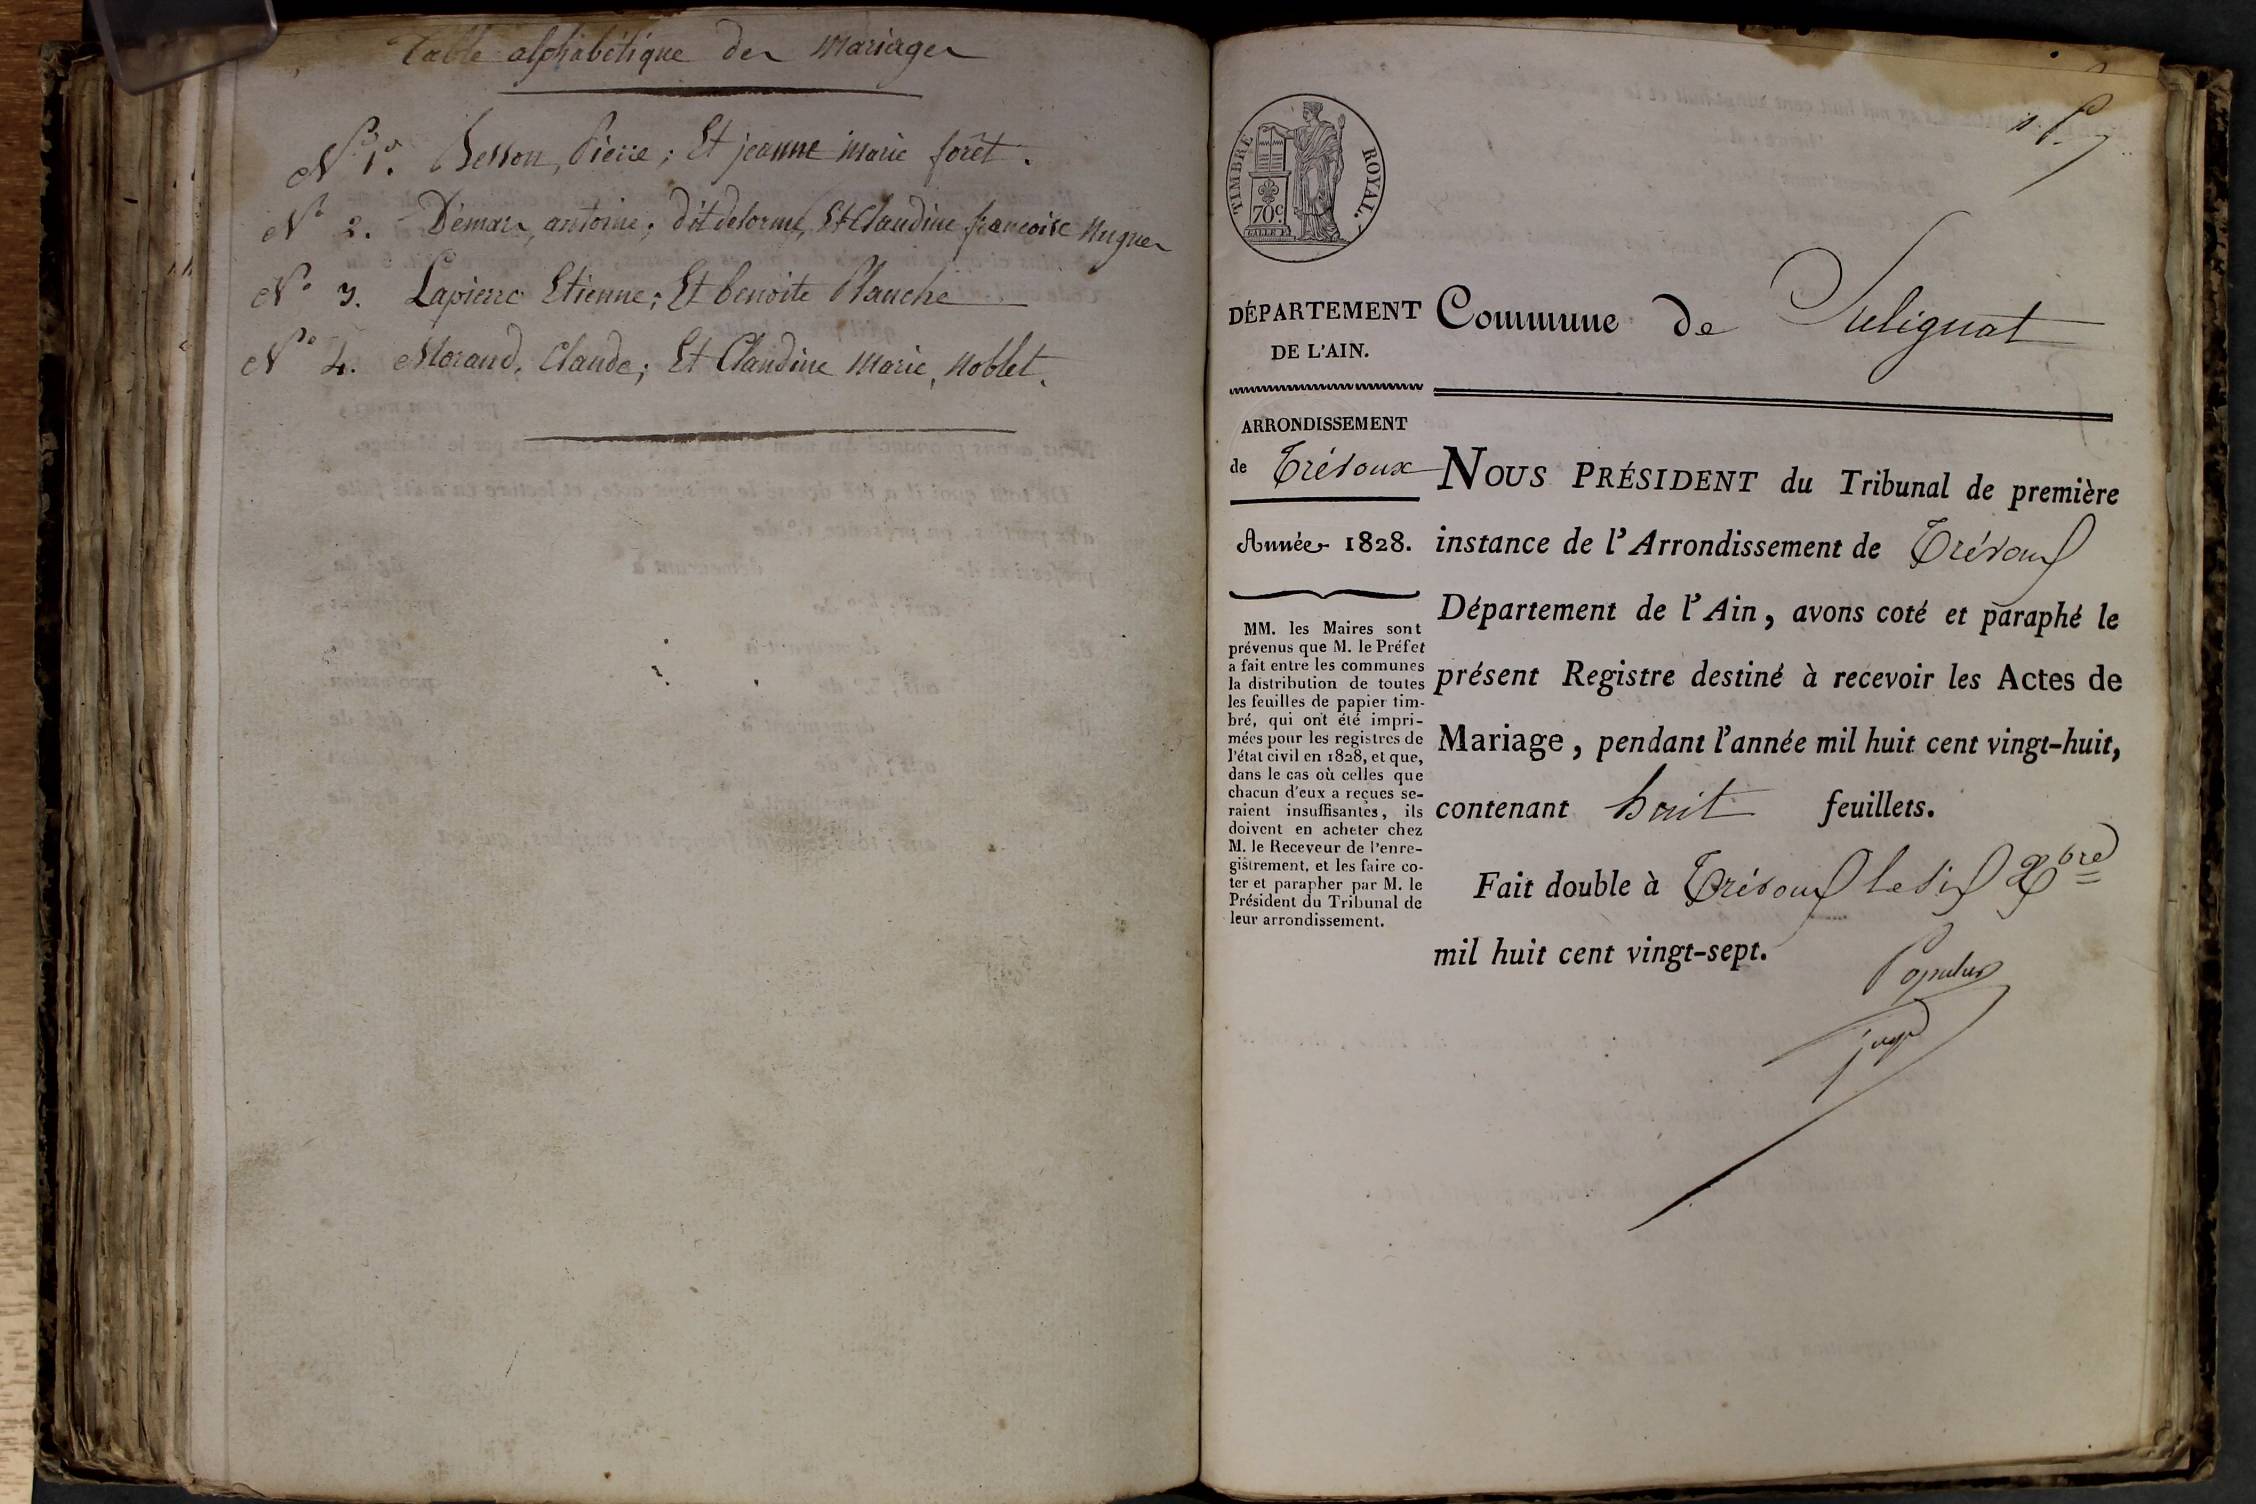 Table alphabétique des Mariages
N° 1er. Besson, Pierre; Et jeanne marie forêt.
N° 2. Démars, antoine; dit delorme, Et Claudine francoise Hugues
N° 3. Lapierre Etienne; Et benoite Planche
N° 4. Morand, Claude; Et Claudine Marie, Noblet.
TIMBRE ROYAL.
70c.
DÉPARTEMENT
DE L'AIN.
Commune de Sulignat
ARRONDISSEMENT
de Trévoux
Année 1828.
MM. les Maires sont
prévenus que M. le Préfet
a fait entre les communes
la distribution de toutes
les feuilles de papier tim-
bré, qui ont été impri-
mées pour les registres de
l'état civil en 1828, et que,
dans le cas où celles que
chacun d'eux a reçues se-
raient insuffisantes, ils
doivent en acheter chez
M. le Receveur de l'enre-
gistrement, et les faire co-
ter et parapher par M. le
Président du Tribunal de
leur arrondissement.
NOUS PRÉSIDENT du Tribunal de première
instance de l'Arrondissement de Trévoux
Département de l'Ain, avons coté et paraphé le
présent Registre destiné à recevoir les Actes de
Mariage, pendant l'année mil huit cent vingt-huit,
contenant huit feuillets.
Fait double à Trévoux le dix Xbre
mil huit cent vingt-sept.
Populus
juge